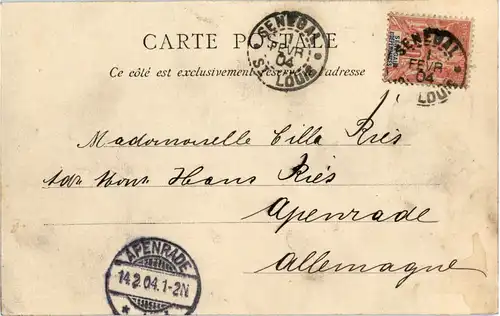 CARTE POSTALE
Ce côté est exclusivement réservé à l'adresse
SENEGAL
FEVR
04
ST LOUIS
SENEGAL
FEVR
04
LOUIS
Mademoiselle Cilla Riés
Hans Riés
Apenrade
Allemagne
APENRADE
14.2.04.1-2N